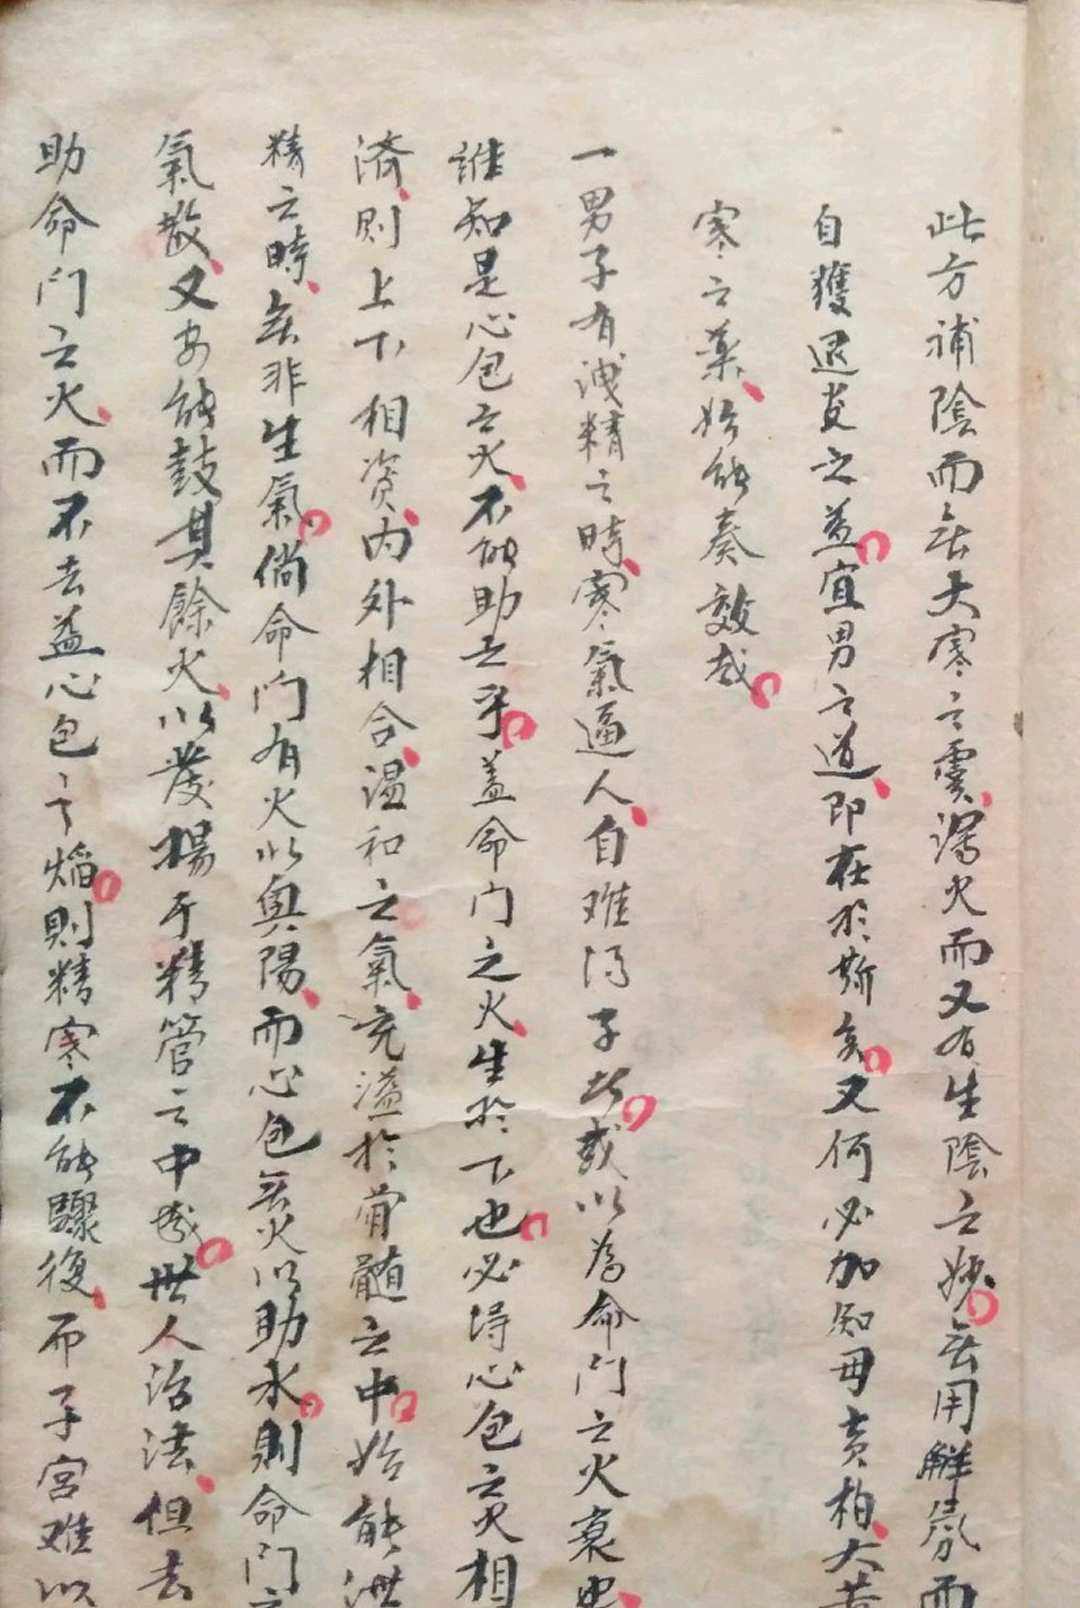 此方補陰而無大寒之虞、瀉火而又有生陰之妙。無用解氛而
自獲退炎之益。宜男之道、即在於斯矣。又何必加知母黄柏、大苦
寒之藥、始能奏效哉。
一男子有洩精之時、寒氣逼人、自难得子者。或以為命門之火衰也、
誰知是心包之火、不能助之乎。蓋命门之火、生於下也。必得心包之火相
濟、則上下相資、内外相合、温和之氣、充溢於骨髓之中。始能洩
精之時、無非生氣。倘命门有火以興陽、而心包無火以助水。則命门之
氣散、又安能鼓其餘火、以發揚于精管之中哉。世人治法、但去
助命门之火、而不去益心包之焰。則精寒不能驟復、而子宮难以